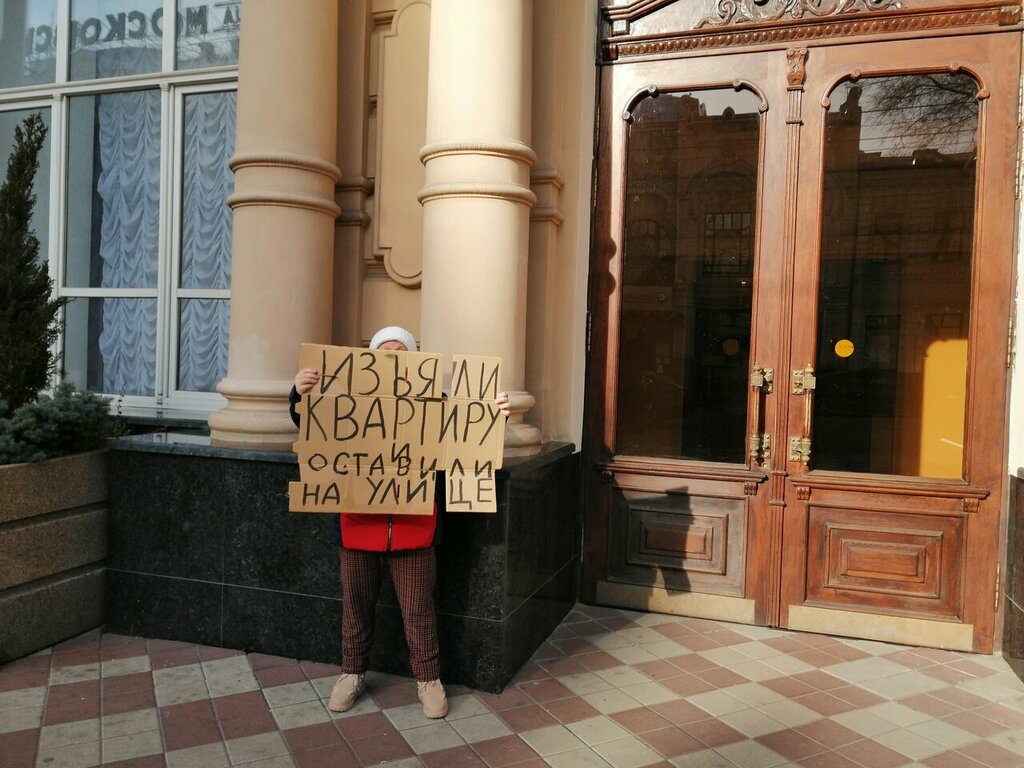 МОСКОВС
ИЗЪЯЛИ
КВАРТИРУ
И
ОСТАВИЛИ
НА УЛИЦЕ